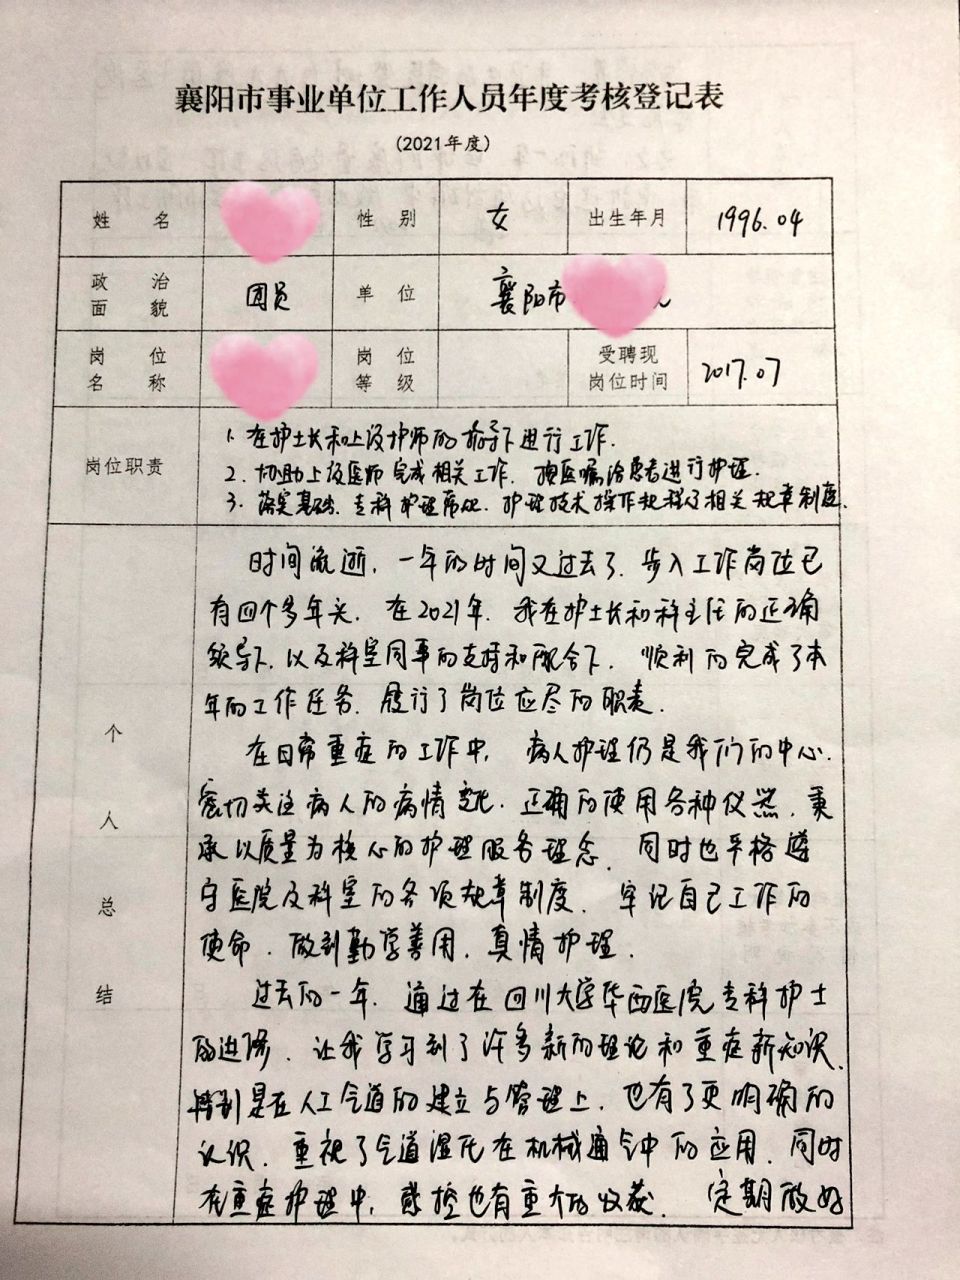 襄阳市事业单位工作人员年度考核登记表
(2021年度)
姓 名
性 别
女
出生年月
1996.04
政 治
面 貌
团员
单 位
襄阳市
岗 位
名 称
岗 位
等 级
受聘现
岗位时间
2017.07
岗位职责
1. 在护士长和上级护师的指导下进行工作.
2. 协助上级医师完成相关工作. 按医嘱治患者进行护理.
3. 落实基础、专科护理常规. 护理技术操作规程及相关规章制度.
个人总结
时间流逝, 一年的时间又过去了. 步入工作岗位已
有四个多年头. 在2021年. 我在护士长和科主任的正确
领导下, 以及科室同事的支持和配合下. 顺利的完成了本
年的工作任务. 履行了岗位应尽的职责.
在日常重症的工作中, 病人护理仍是我们的中心.
密切关注病人的病情变化. 正确的使用各种仪器, 秉
承以质量为核心的护理服务理念. 同时也严格遵
守医院及科室的各项规章制度. 牢记自己工作的
使命. 做到勤学善用, 真情护理.
过去的一年. 通过在四川大学华西医院专科护士
的进修. 让我学习到了许多新的理论和重症新知识.
特别是在人工气道的建立与管理上. 也有了更明确的
认识. 重视了气道湿化在机械通气中的应用. 同时
在重症护理中, 感控也有重大的收获. 定期做好